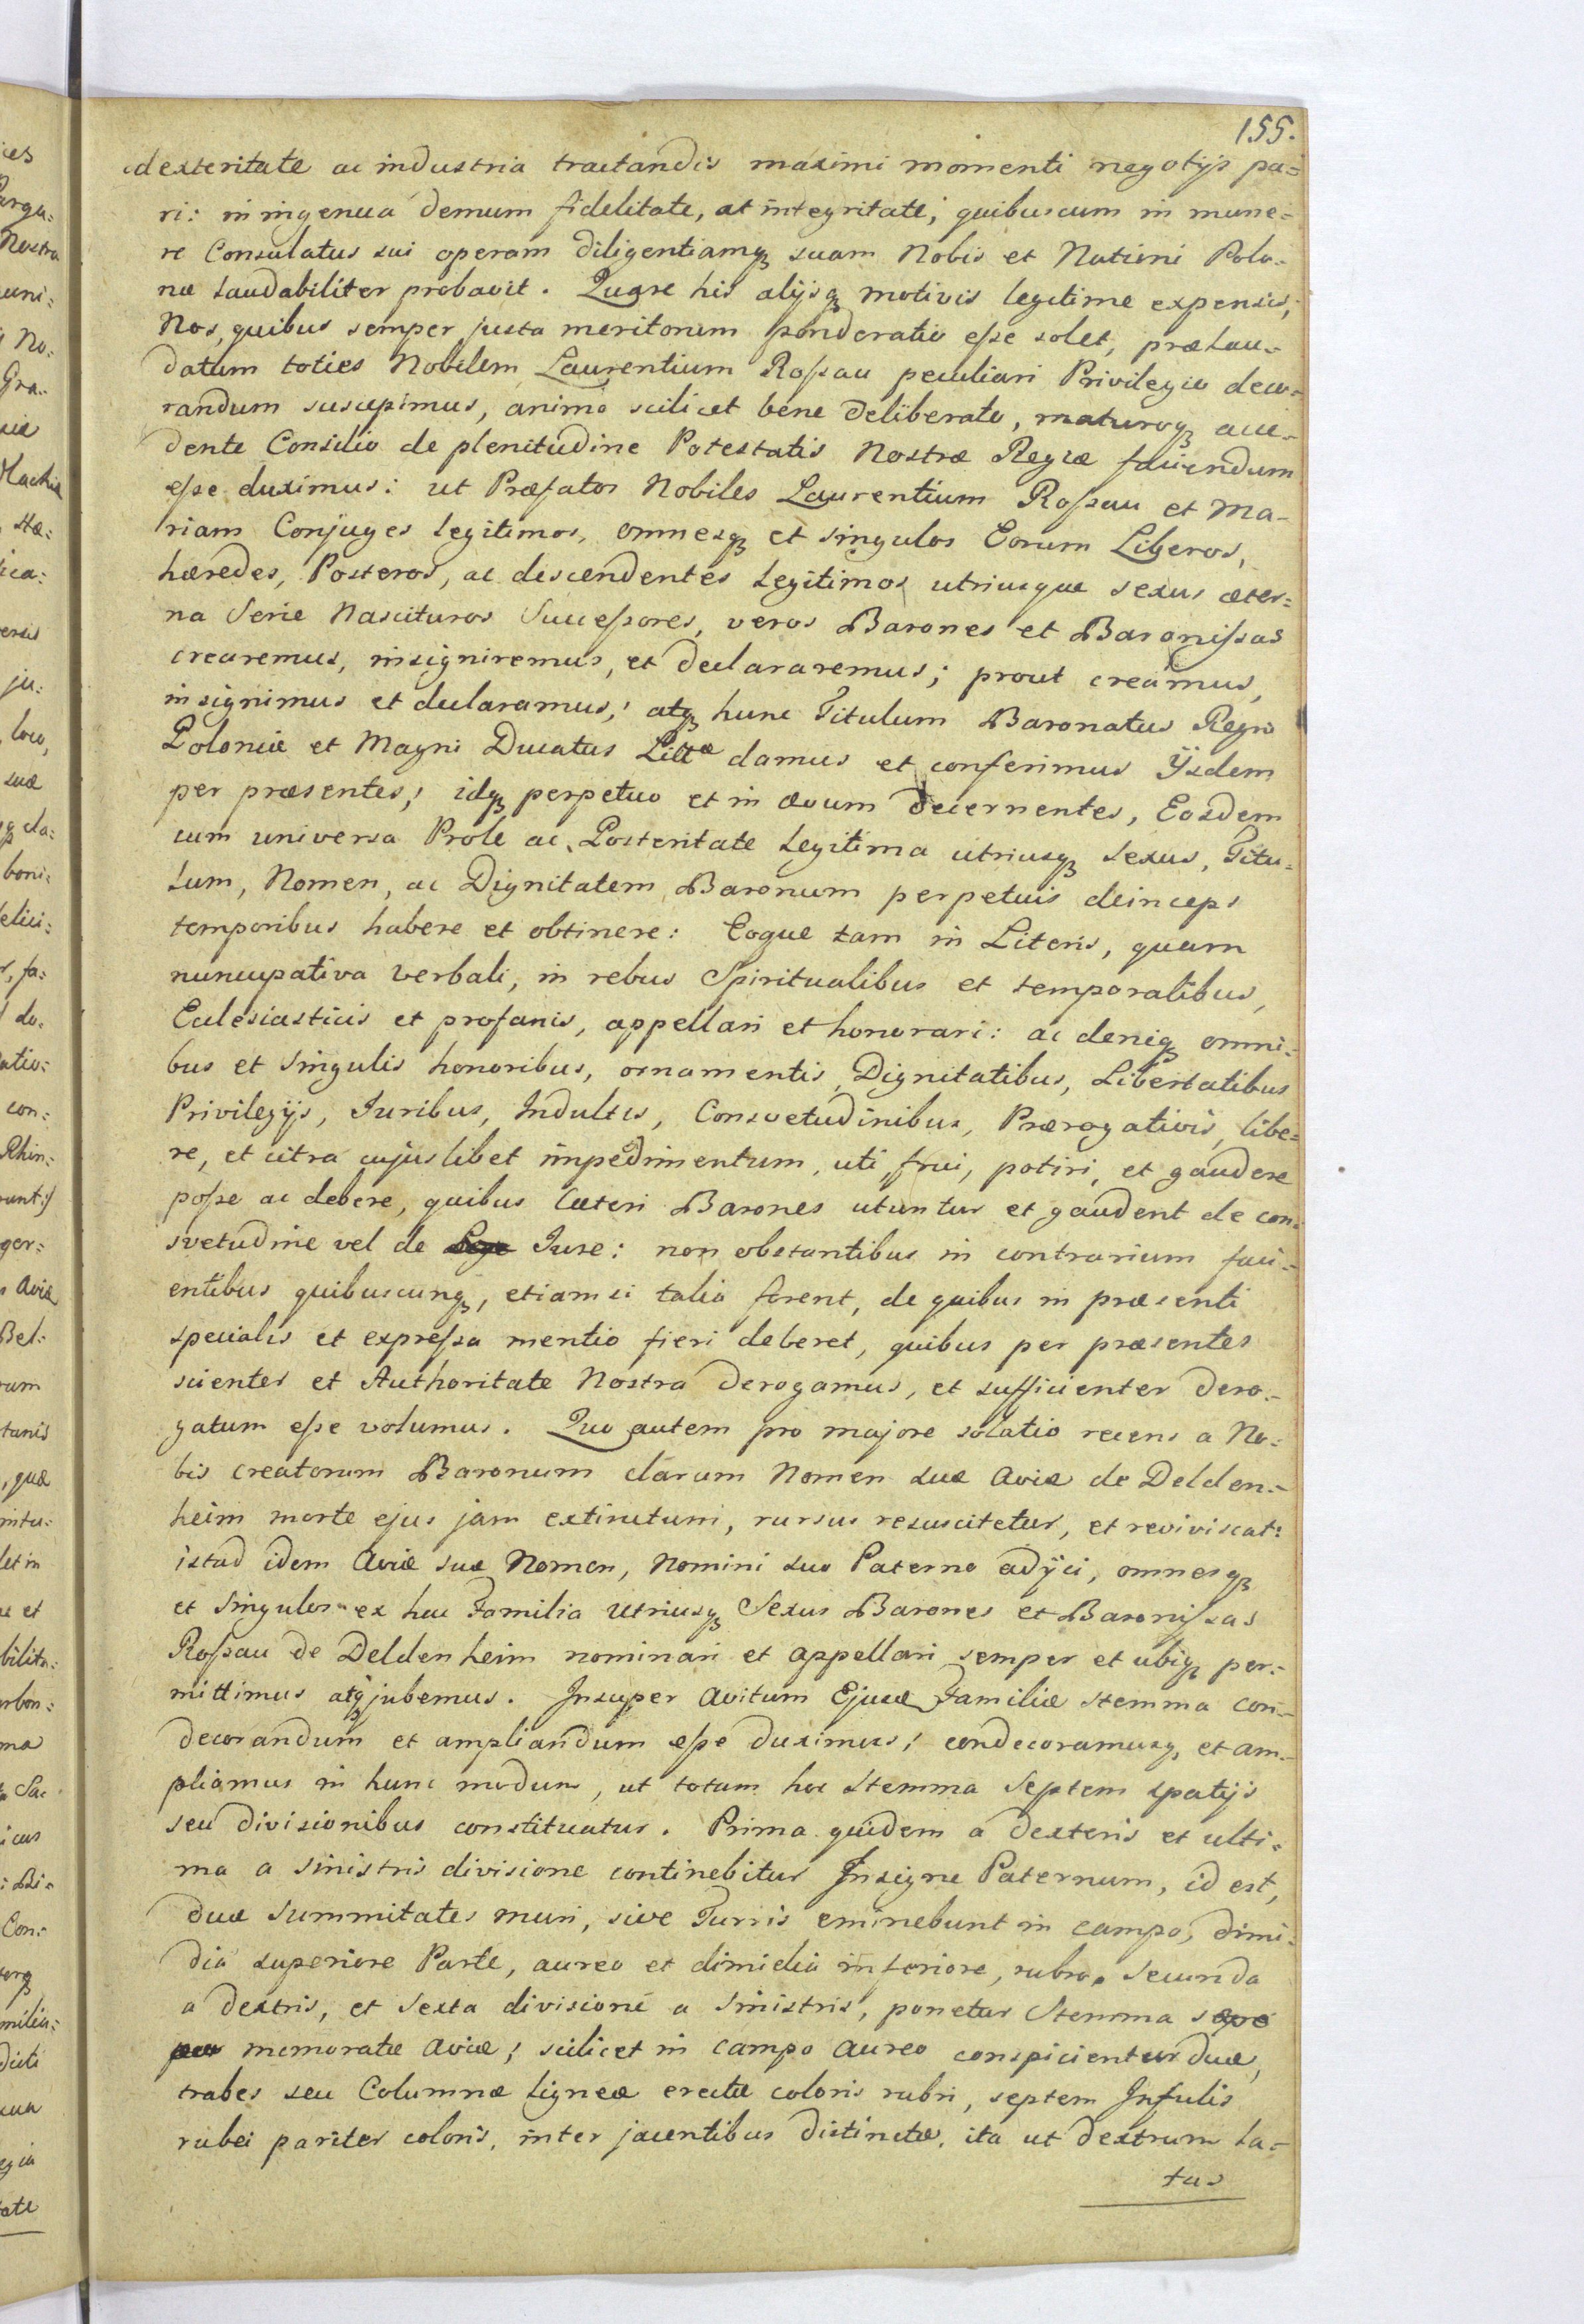 155.
dexteritate ac industria tractandis maximi momenti negotijs pa=
ri: in ingenua demum fidelitate, at integritate; quibuscum in mune=
re Consulatus sui operam diligentiamq₃ suam Nobis et Nationi Polo=
næ laudabiliter probavit. Quare his alijsq₃ motivis legitime expensis,
Nos, quibus semper justa meritorum ponderatio eſse solet, prælau=
datum toties Nobilem Laurentium Roſsau peculiari Privilegio deco=
randum suscepimus, animo scilicet bene deliberato, maturoq₃ acce=
dente Consilio de plenitudine Potestatis Nostræ Regiæ faciendum
eſse duximus: ut Præfatos Nobiles Laurentium Roſsau et Ma=
riam Conjuges legitimos, omnesq₃ et singulos Eorum Liberos,
hæredes, Posteros, ac descendentes legitimos utriusque sexus æter=
na Serie Nascituros Succeſsores, veros Barones et Baroniſsas
crearemus, insigniremus, et declararemus; prout creamus,
insignimus et declaramus; atq₃ hunc Titulum Baronatus Regni
Poloniæ et Magni Ducatus Littæ damus et conferimus Ijsdem
per præsentes; idq₃ perpetuo et in ævum decernentes, Eosdem
cum universa Prole ac Posteritate legitima utriusq₃ sexus, Titu=
lum, Nomen, ac Dignitatem Baronum perpetuis deinceps
temporibus habere et obtinere: Eoque tam in Literis, quam
nuncupativa verbali, in rebus Spiritualibus et temporalibus,
Ecclesiasticis et profanis, appellari et honorari: ac deniq₃ omni=
bus et singulis honoribus, ornamentis, Dignitatibus, Libertatibus
Privilegijs, Juribus, Indultis, Consvetudinibus, Prærogativis, libe=
re, et citra cujuslibet impedimentum, uti, frui, potiri, et gaudere
poſse ac debere, quibus Cæteri Barones utuntur et gaudent de con=
svetudine vel de Lege Jure: non obstantibus in contrarium faci=
entibus quibuscunq₃, etiamsi talia forent, de quibus in præsenti
specialis et expreſsa mentio fieri deberet, quibus per præsentes
scienter et Authoritate Nostra derogamus, et sufficienter dero=
gatum eſse volumus. Quo autem pro majore solatio recens a No=
bis creatorum Baronum clarum Nomen suæ Aviæ de Delden=
heim morte ejus jam extinctum, rursus resuscitetur, et reviviscat:
istud idem Aviæ suæ Nomen, Nomini suo Paterno adijci, omnesq₃
et singulos ex hac Familia Utriusq₃ Sexus Barones et Baroniſsas
Roſsau de Deldenheim nominari et appellari semper et ubiq₃ per=
mittimus atq₃ jubemus. Insuper Avitum Ejus Familiæ stemma con=
decorandum et ampliandum eſse duximus; condecoramusq₃ et am=
pliamus in hunc modum, ut totum hoc stemma septem spatijs
seu divisionibus constituatur. Prima quidem a dexteris et ulti=
ma a sinistris divisione continebitur Insigne Paternum, id est,
duæ summitates muri, sive Turris eminebunt in campo, dimi=
dia superiore Parte, aureo et dimidia inferiore, rubro. Secunda
a dextris, et sexta divisione a sinistris, ponetur Stemma sæpe
memoratæ Aviæ; scilicet in campo aureo conspicientur duæ,
trabes seu Columnæ ligneæ erectæ coloris rubri, septem Infulis
rubei pariter coloris, inter jacentibus distinctæ, ita ut dextrum la=
tus